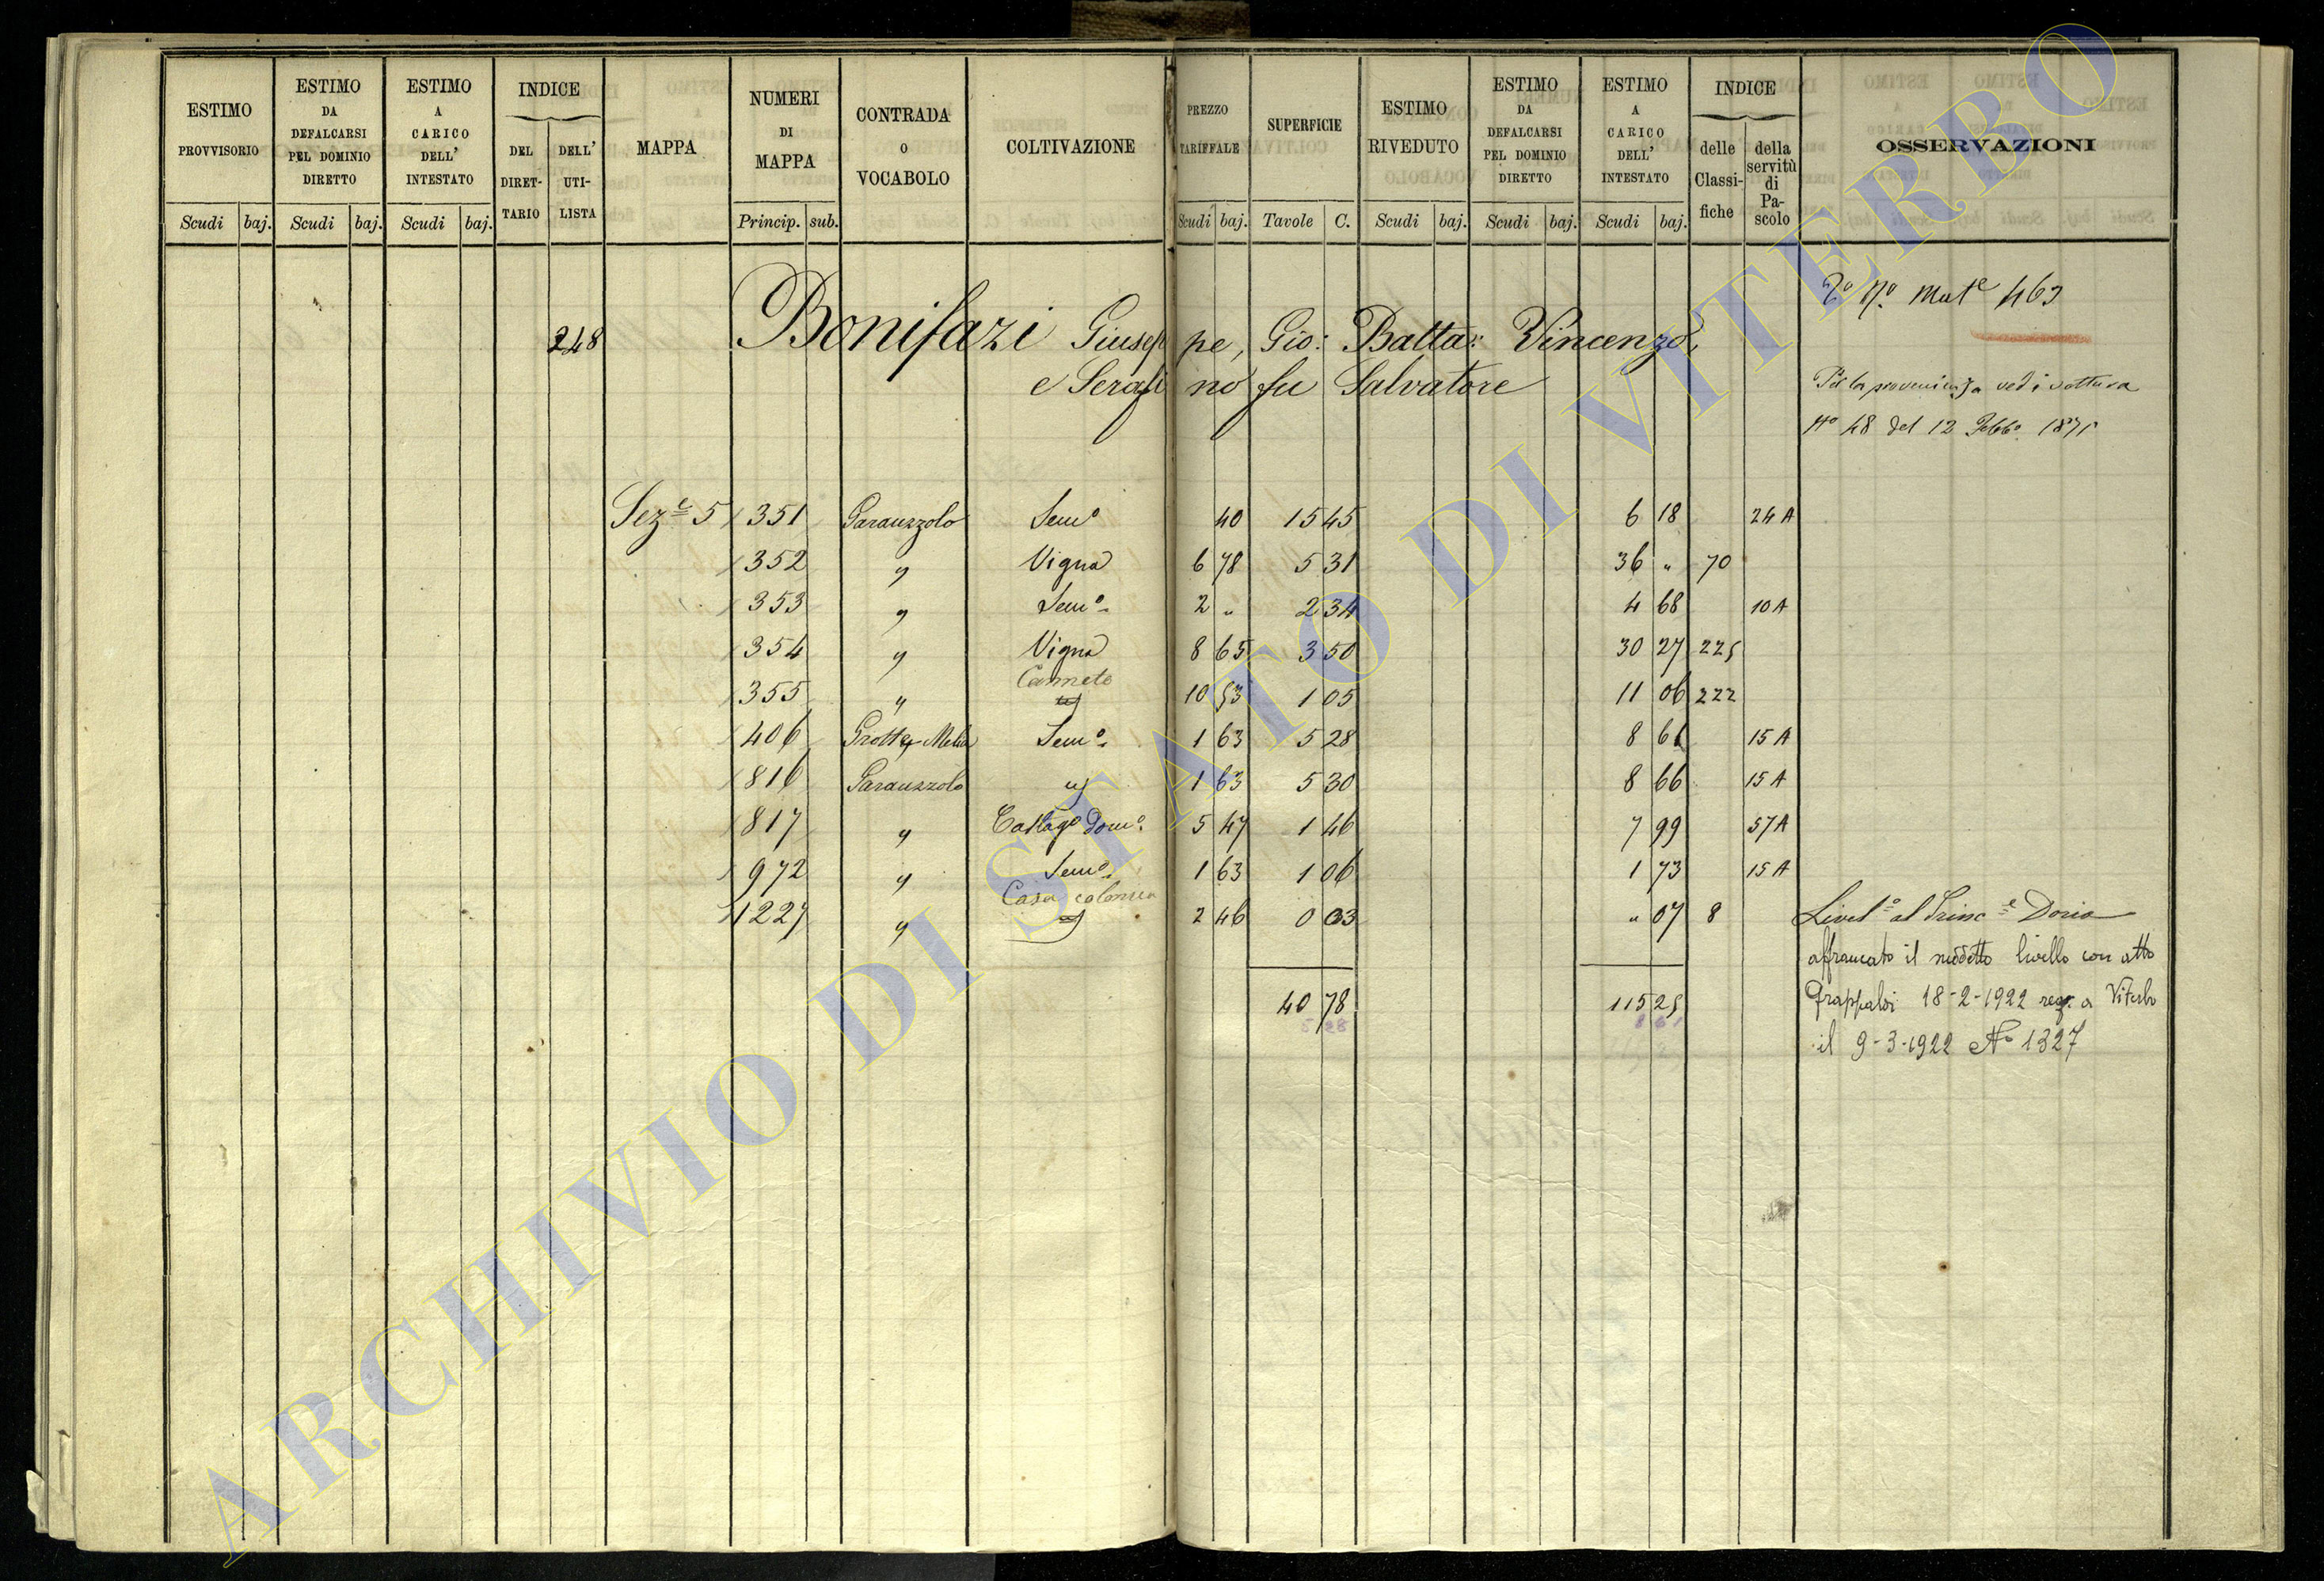 ESTIMO PROVVISORIO
ESTIMO DA DEFALCARSI PEL DOMINIO DIRETTO
ESTIMO A CARICO DELL' INTESTATO
INDICE
DEL DIRET-TARIO
DELL' UTI-LISTA
MAPPA
NUMERI DI MAPPA
CONTRADA O VOCABOLO
COLTIVAZIONE
PREZZO TARIFFALE
SUPERFICIE
ESTIMO RIVEDUTO
ESTIMO DA DEFALCARSI PEL DOMINIO DIRETTO
ESTIMO A CARICO DELL' INTESTATO
INDICE
delle Classi-fiche
della servitù di Pa-scolo
OSSERVAZIONI
Scudi baj. Scudi baj. Scudi baj. Princip. sub. Scudi baj. Tavole C. Scudi baj. Scudi baj. Scudi baj.
248 Bonifazi Giuseppe, Gio: Batta: Vincenzo,
e Serafino fu Salvatore
463
vedi voltura
No 48 del 12 Febbo. 1871
Seze 5 351 Semo 40 15 45 6 18 24 A
352 " Vigna 6 78 5 31 36 " 70
353 " Semo 2 " 2 34 4 68 10 A
354 " Vigna 8 65 3 50 30 27 225
355 " Canneto 10 53 1 05 11 06 222
406 Semo 1 63 5 28 8 61 15 A
816 " 1 63 5 30 8 66 15 A
817 " 5 47 1 46 7 99 57 A
972 " Semo 1 63 1 06 1 73 15 A
1227 " Casa colonica 2 46 0 03 " 07 8
40 78 115 25
Livelo al Prince Doria
affrancato il suddetto livello con atto
18-2-1922 reg. a Viterbo
il 9-3-1922 No 1327
ARCHIVIO DI STATO DI VITERBO